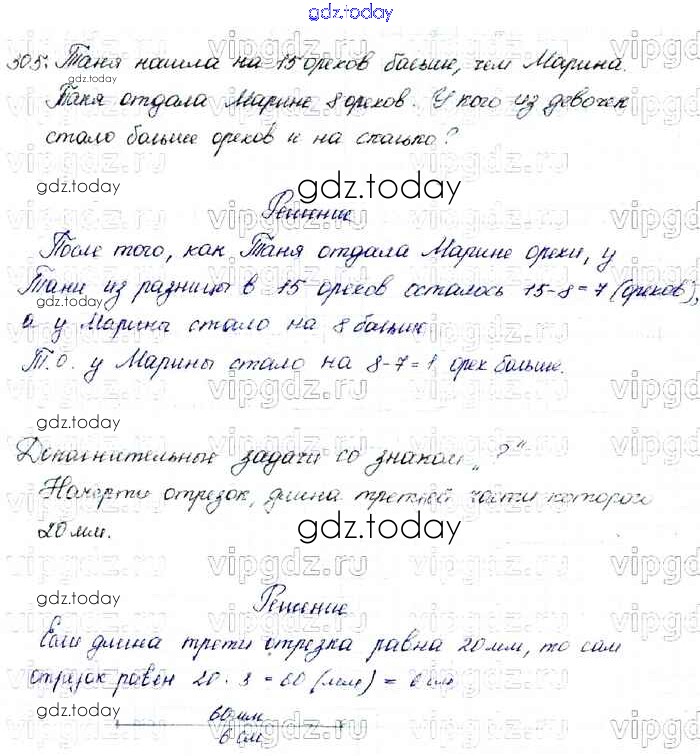 gdz.today
305. Таня нашла на 15 орехов больше, чем Марина.
Таня отдала Марине 8 орехов. У кого из девочек
стало больше орехов и на сколько?
gdz.today
gdz.today
Решение
После того, как Таня отдала Марине орехи, у
Тани из разницы в 15 орехов осталось 15-8=7 (орехов),
gdz.today
а у Марины стало на 8 больше.
Т.о. у Марины стало на 8-7=1 орех больше.
gdz.today
Дополнительные задачи со знаком "?"
Начерти отрезок, длина третьей части которого
20 мм.
gdz.today
vipgdz.ru
gdz.today
Решение
Если длина трети отрезка равна 20 мм, то сам
отрезок равен 20 · 3 = 60 (мм) = 6 см
gdz.today
60 мм
6 см